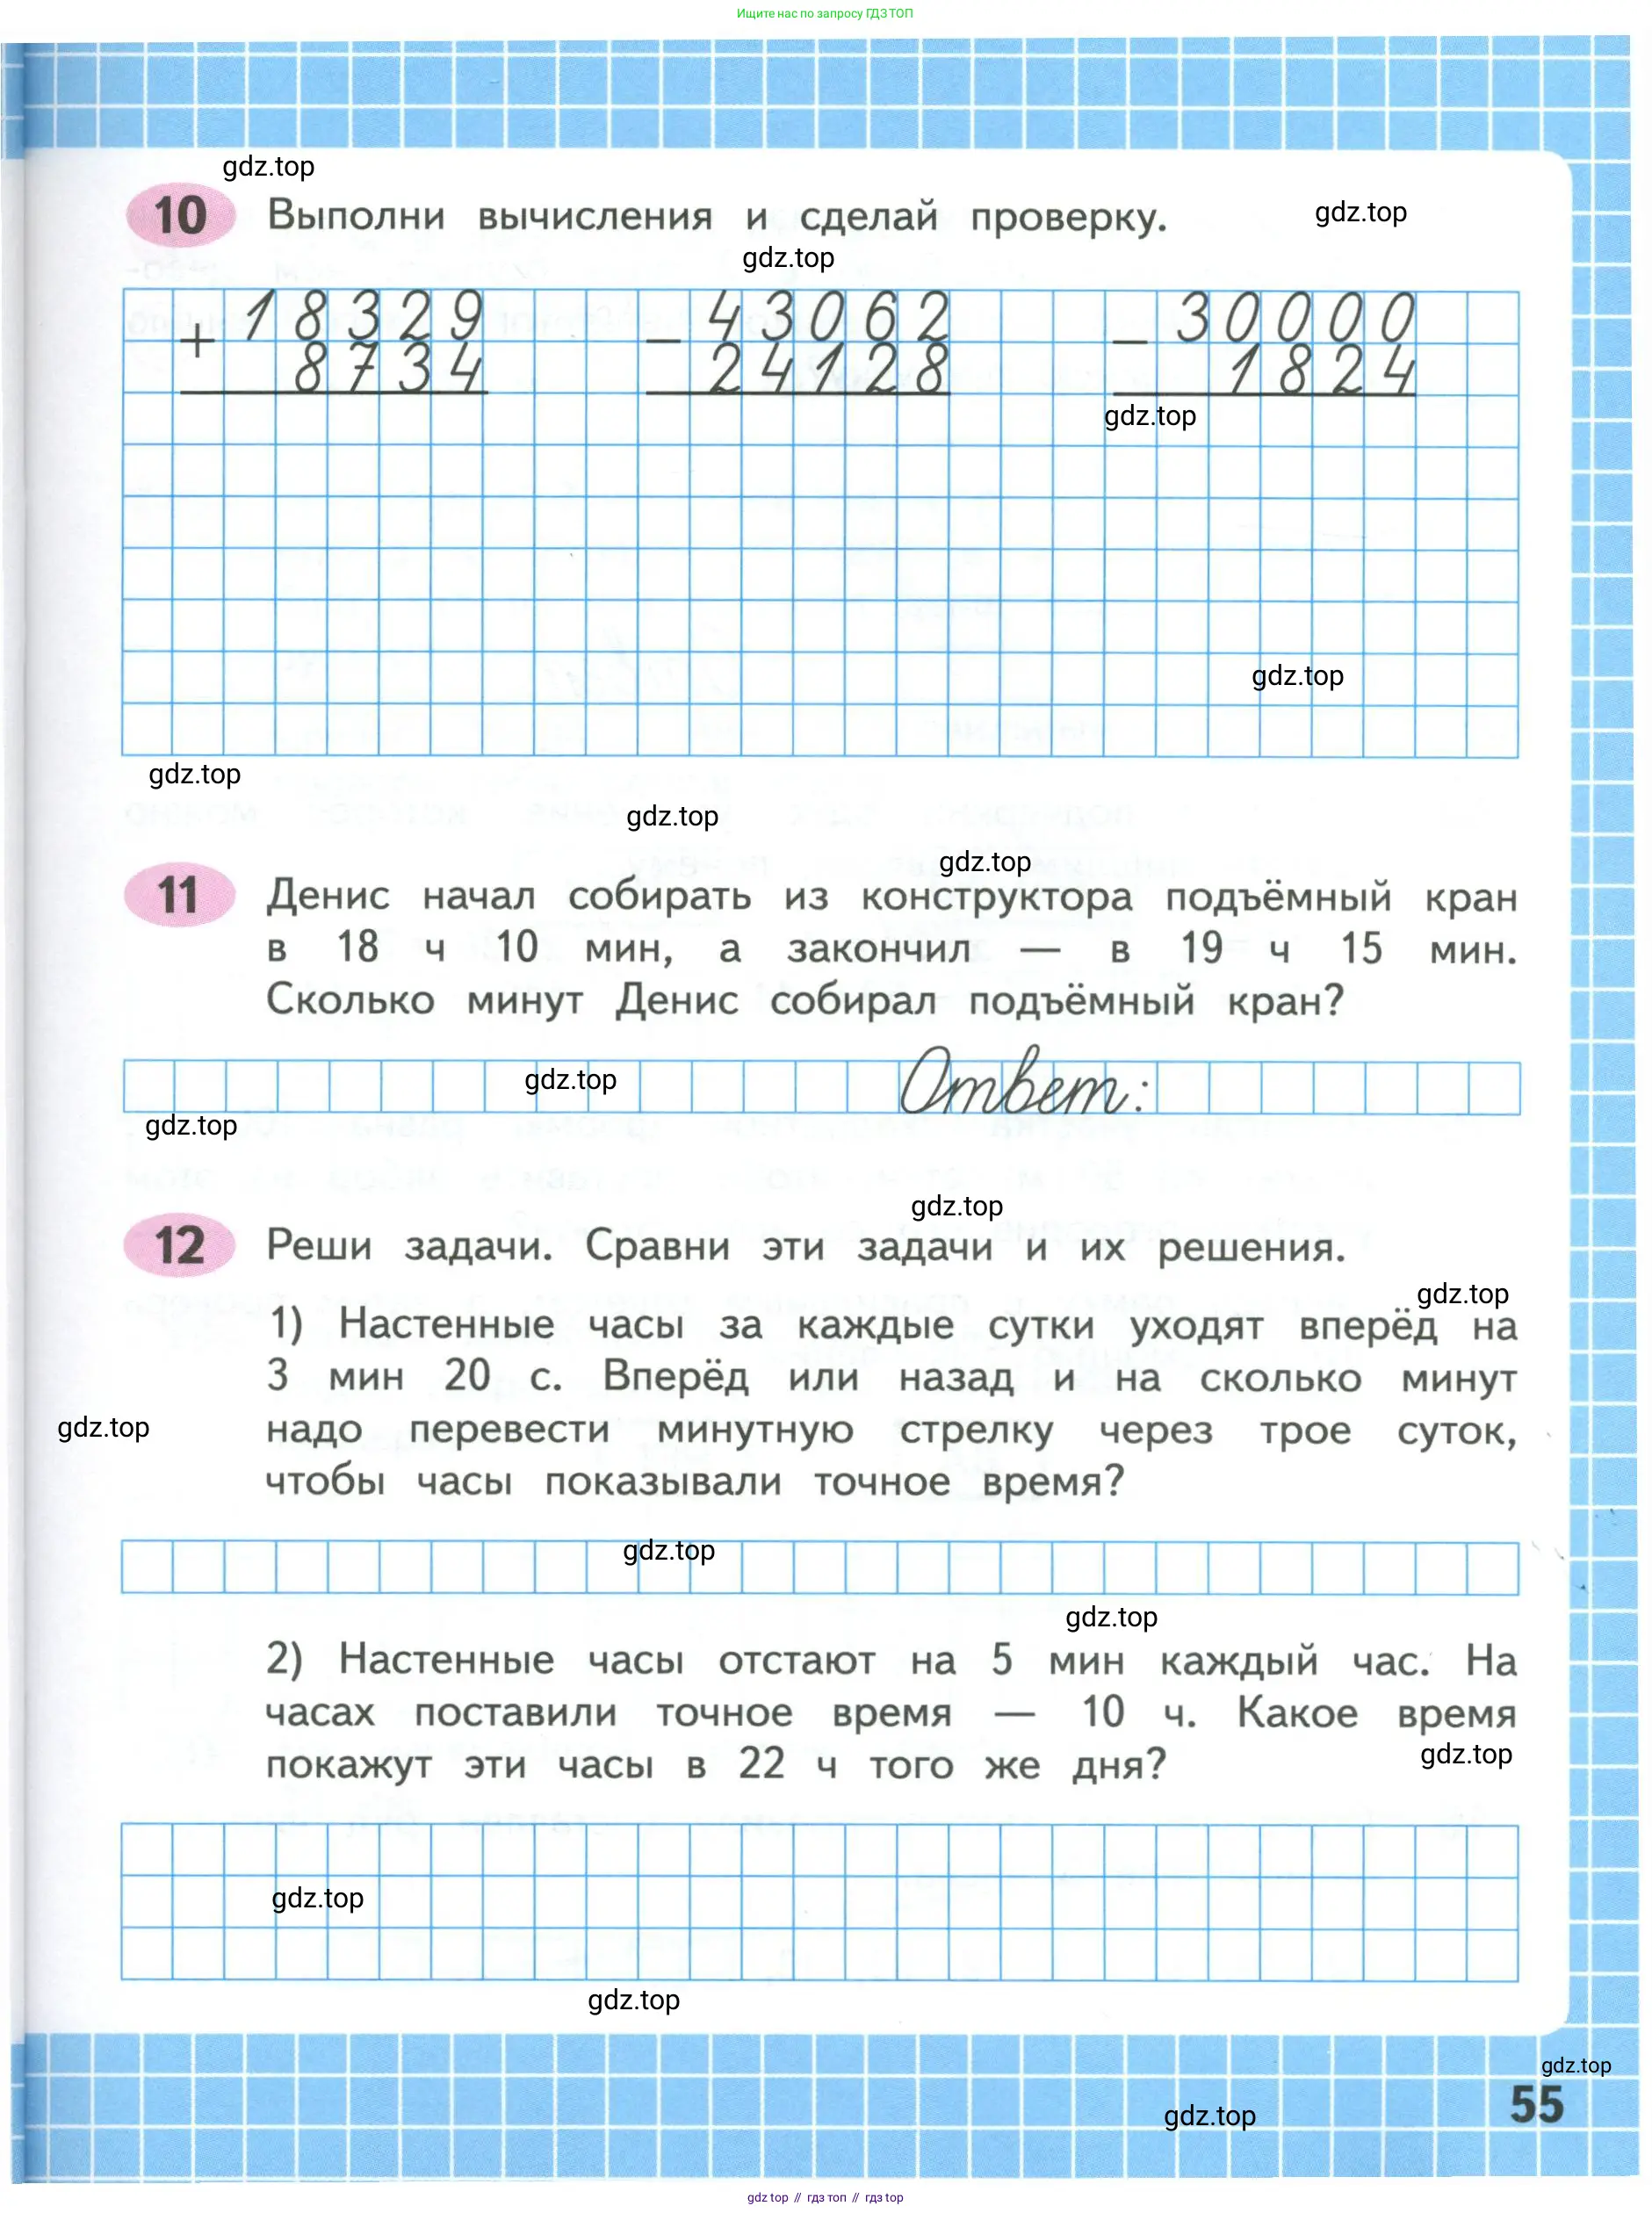 Ищите нас по запросу ГДЗ ТОП
gdz.top
10 Выполни вычисления и сделай проверку.
gdz.top
gdz.top
+ 18329 − 43062 − 30000
8734 24128 1824
gdz.top
gdz.top
gdz.top
gdz.top
gdz.top
11 Денис начал собирать из конструктора подъёмный кран
в 18 ч 10 мин, а закончил — в 19 ч 15 мин.
Сколько минут Денис собирал подъёмный кран?
gdz.top
Ответ:
gdz.top
gdz.top
12 Реши задачи. Сравни эти задачи и их решения.
gdz.top
1) Настенные часы за каждые сутки уходят вперёд на
3 мин 20 с. Вперёд или назад и на сколько минут
gdz.top
надо перевести минутную стрелку через трое суток,
чтобы часы показывали точное время?
gdz.top
gdz.top
2) Настенные часы отстают на 5 мин каждый час. На
часах поставили точное время — 10 ч. Какое время
gdz.top
покажут эти часы в 22 ч того же дня?
gdz.top
gdz.top
gdz.top
55
gdz.top
gdz top // гдз топ // гдз top